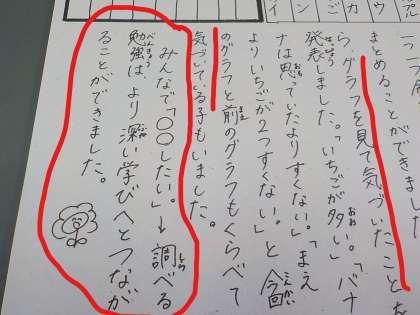 まとめることができました
ら、グラフを見て気づいたことを
発表しました。「いちごが多い。」「バナ
ナは思っていたよりすくない。」「まえ
よりいちごが2つすくない。」と今回
のグラフと前のグラフもくらべて
気づいている子もいました。
みんなで「〇〇したい。」→調べる
勉強は、より深い学びへとつなが
ることができました。